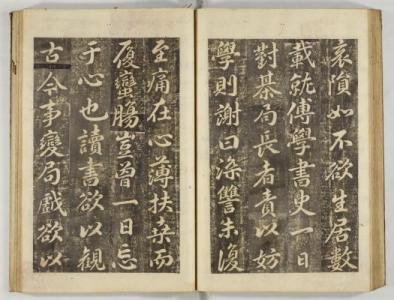 哀隕如不欲生居數
載就傅學書史一日
對棊局長者責以妨
學則謝曰深讐未復
至痛在心薄扶桒而
復蠻腸豈曾一日忘
于心也讀書欲以觀
古今事變局戲欲以